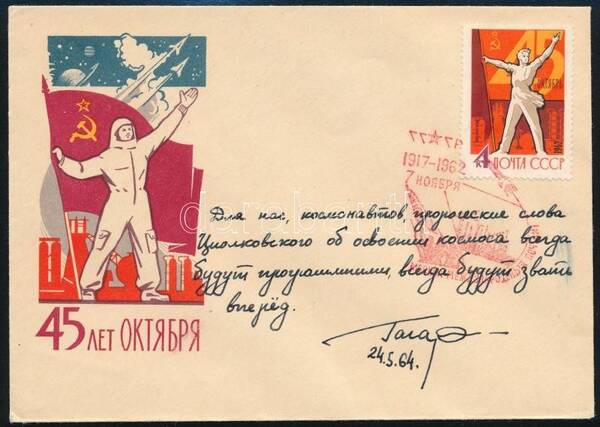 45
ОКТЯБРЬ
1962
4 К
ПОЧТА СССР
1917-1962
7 НОЯБРЯ
Для нас, космонавтов, пророческие слова
Циолковского об освоении космоса всегда
будут программными, всегда будут звать
вперёд.
Гагар
24.5.64.
45 ЛЕТ ОКТЯБРЯ
darabanth